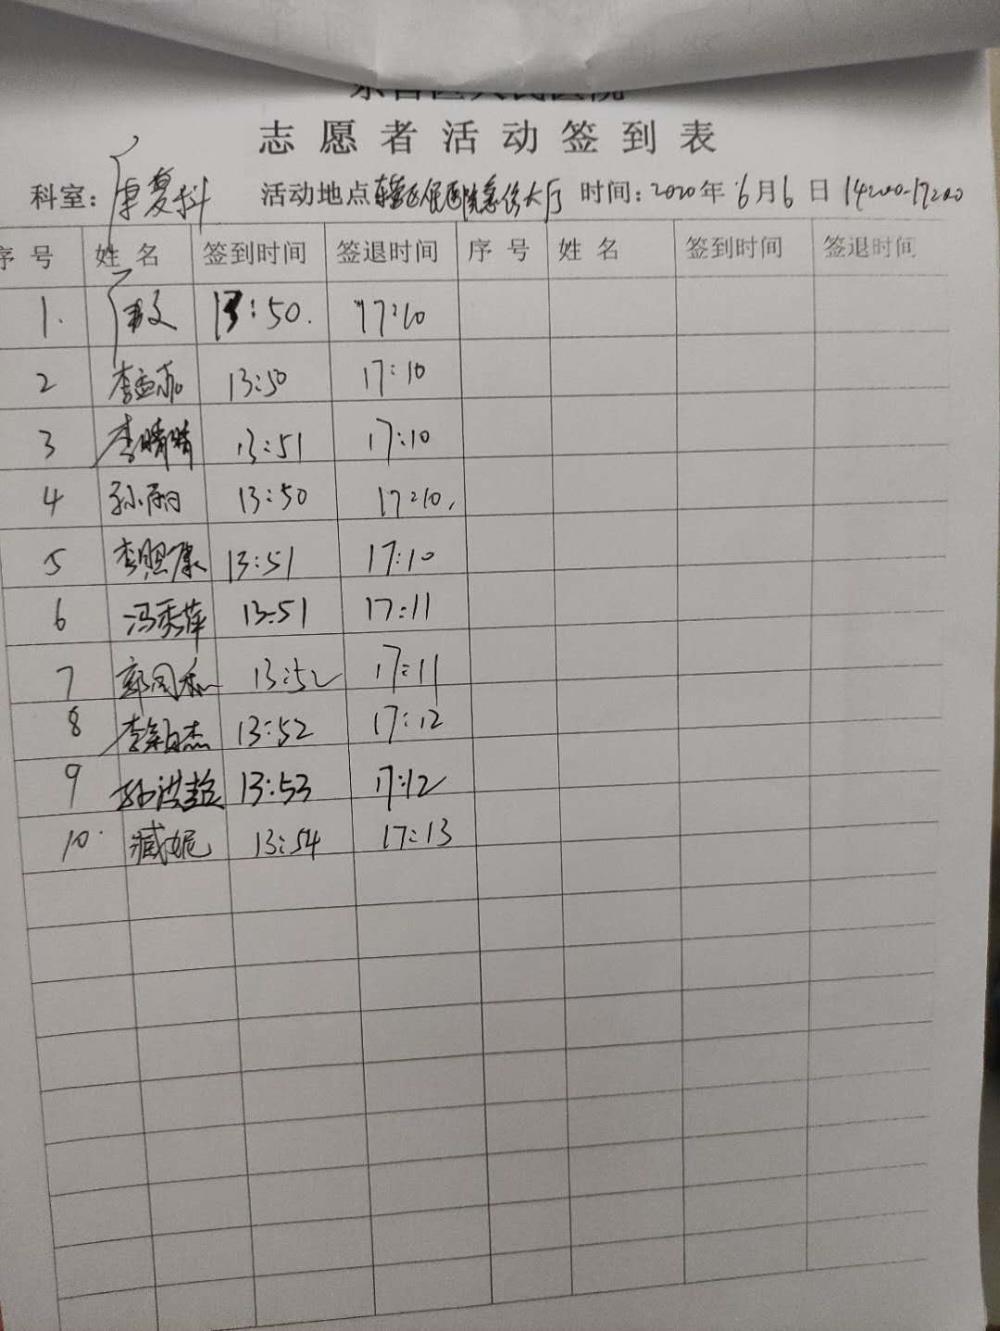 志愿者活动签到表
科室：康复科 活动地点 东营区人民医院急诊大厅 时间：2020年6月6日 14:00-17:00
序号 姓名 签到时间 签退时间 序号 姓名 签到时间 签退时间
1. 13:50. 17:10
2 李孟茹 13:50 17:10
3 李晴晴 13:51 17:10
4 孙丽 13:50 17:10.
5 李照康 13:51 17:10
6 冯秀萍 13:51 17:11
7 13:52 17:11
8 13:52 17:12
9 孙洪超 13:53 17:12
10. 臧妮 13:54 17:13